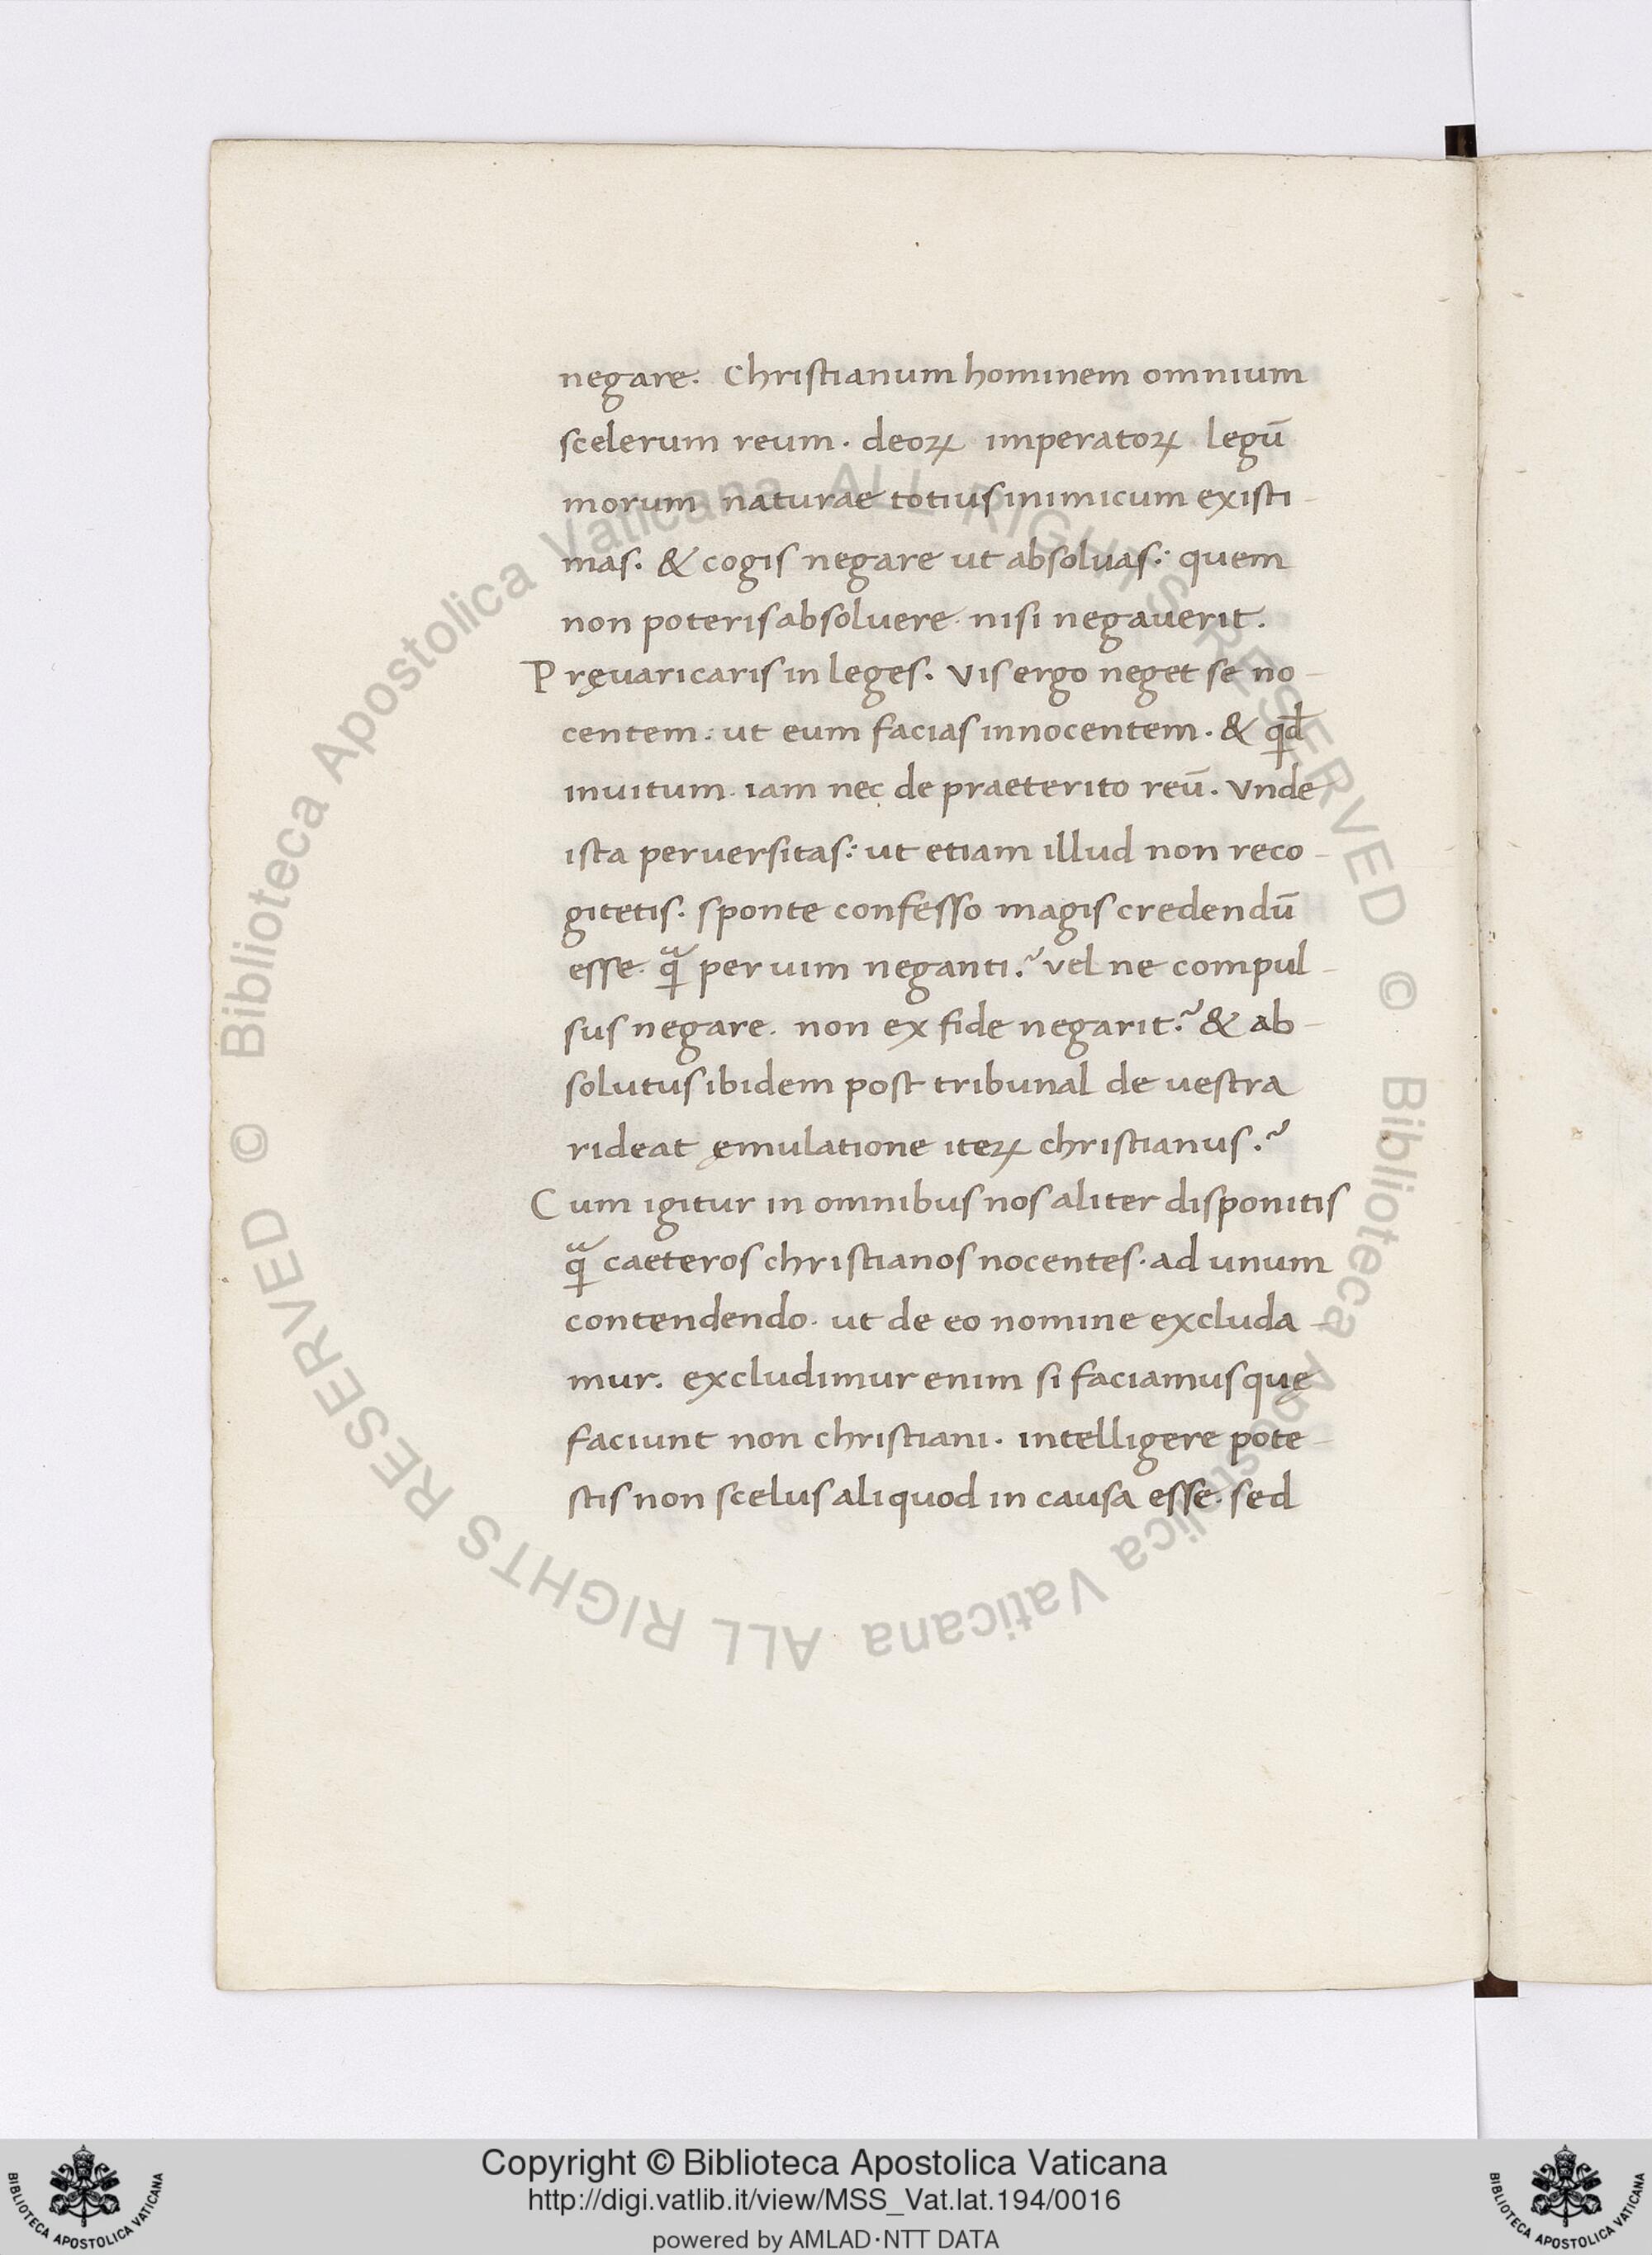 negare. Christianum hominem omnium
scelerum reum. deoꝝ imperatoꝝ legū
morum naturae totius inimicum existi-
mas. & cogis negare ut absoluas: quem
non poteris absoluere nisi negauerit.
Pręuaricaris in leges. Vis ergo neget se no-
centem: ut eum facias innocentem. & qđ
inuitum. iam nec de praeterito reū. Vnde
ista peruersitas: ut etiam illud non reco-
gitetis. sponte confesso magis credendū
esse. qᷓ per uim neganti? vel ne compul-
sus negare. non ex fide negarit? & ab-
solutus ibidem post tribunal de uestra
rideat ęmulatione iteꝝ christianus?
Cum igitur in omnibus nos aliter disponitis
qᷓ caeteros christianos nocentes. ad unum
contendendo. ut de eo nomine excluda-
mur. excludimur enim si faciamus quę
faciunt non christiani. intelligere pote-
stis non scelus aliquod in causa esse. sed
© Biblioteca Apostolica Vaticana ALL RIGHTS RESERVED
© Biblioteca Apostolica Vaticana ALL RIGHTS RESERVED
Copyright © Biblioteca Apostolica Vaticana
http://digi.vatlib.it/view/MSS_Vat.lat.194/0016
powered by AMLAD·NTT DATA
BIBLIOTECA APOSTOLICA VATICANA
BIBLIOTECA APOSTOLICA VATICANA